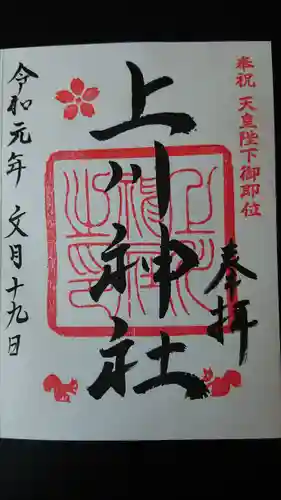 奉祝 天皇陛下御即位
奉拝
上川神社
令和元年 文月十九日